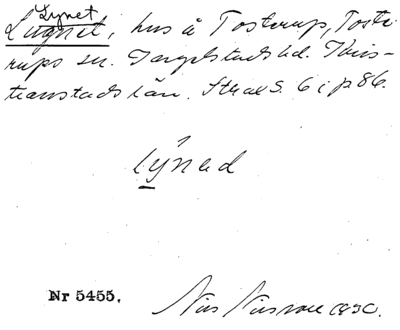 Lynet
Lugnet, hus å Tosterup, Toste-
rups sn. Ingelstads hd. Kris-
tianstads län. Skool S. 6 i p 86.
lýnəd
Nr 5455.
Nils Nilsson 1930.